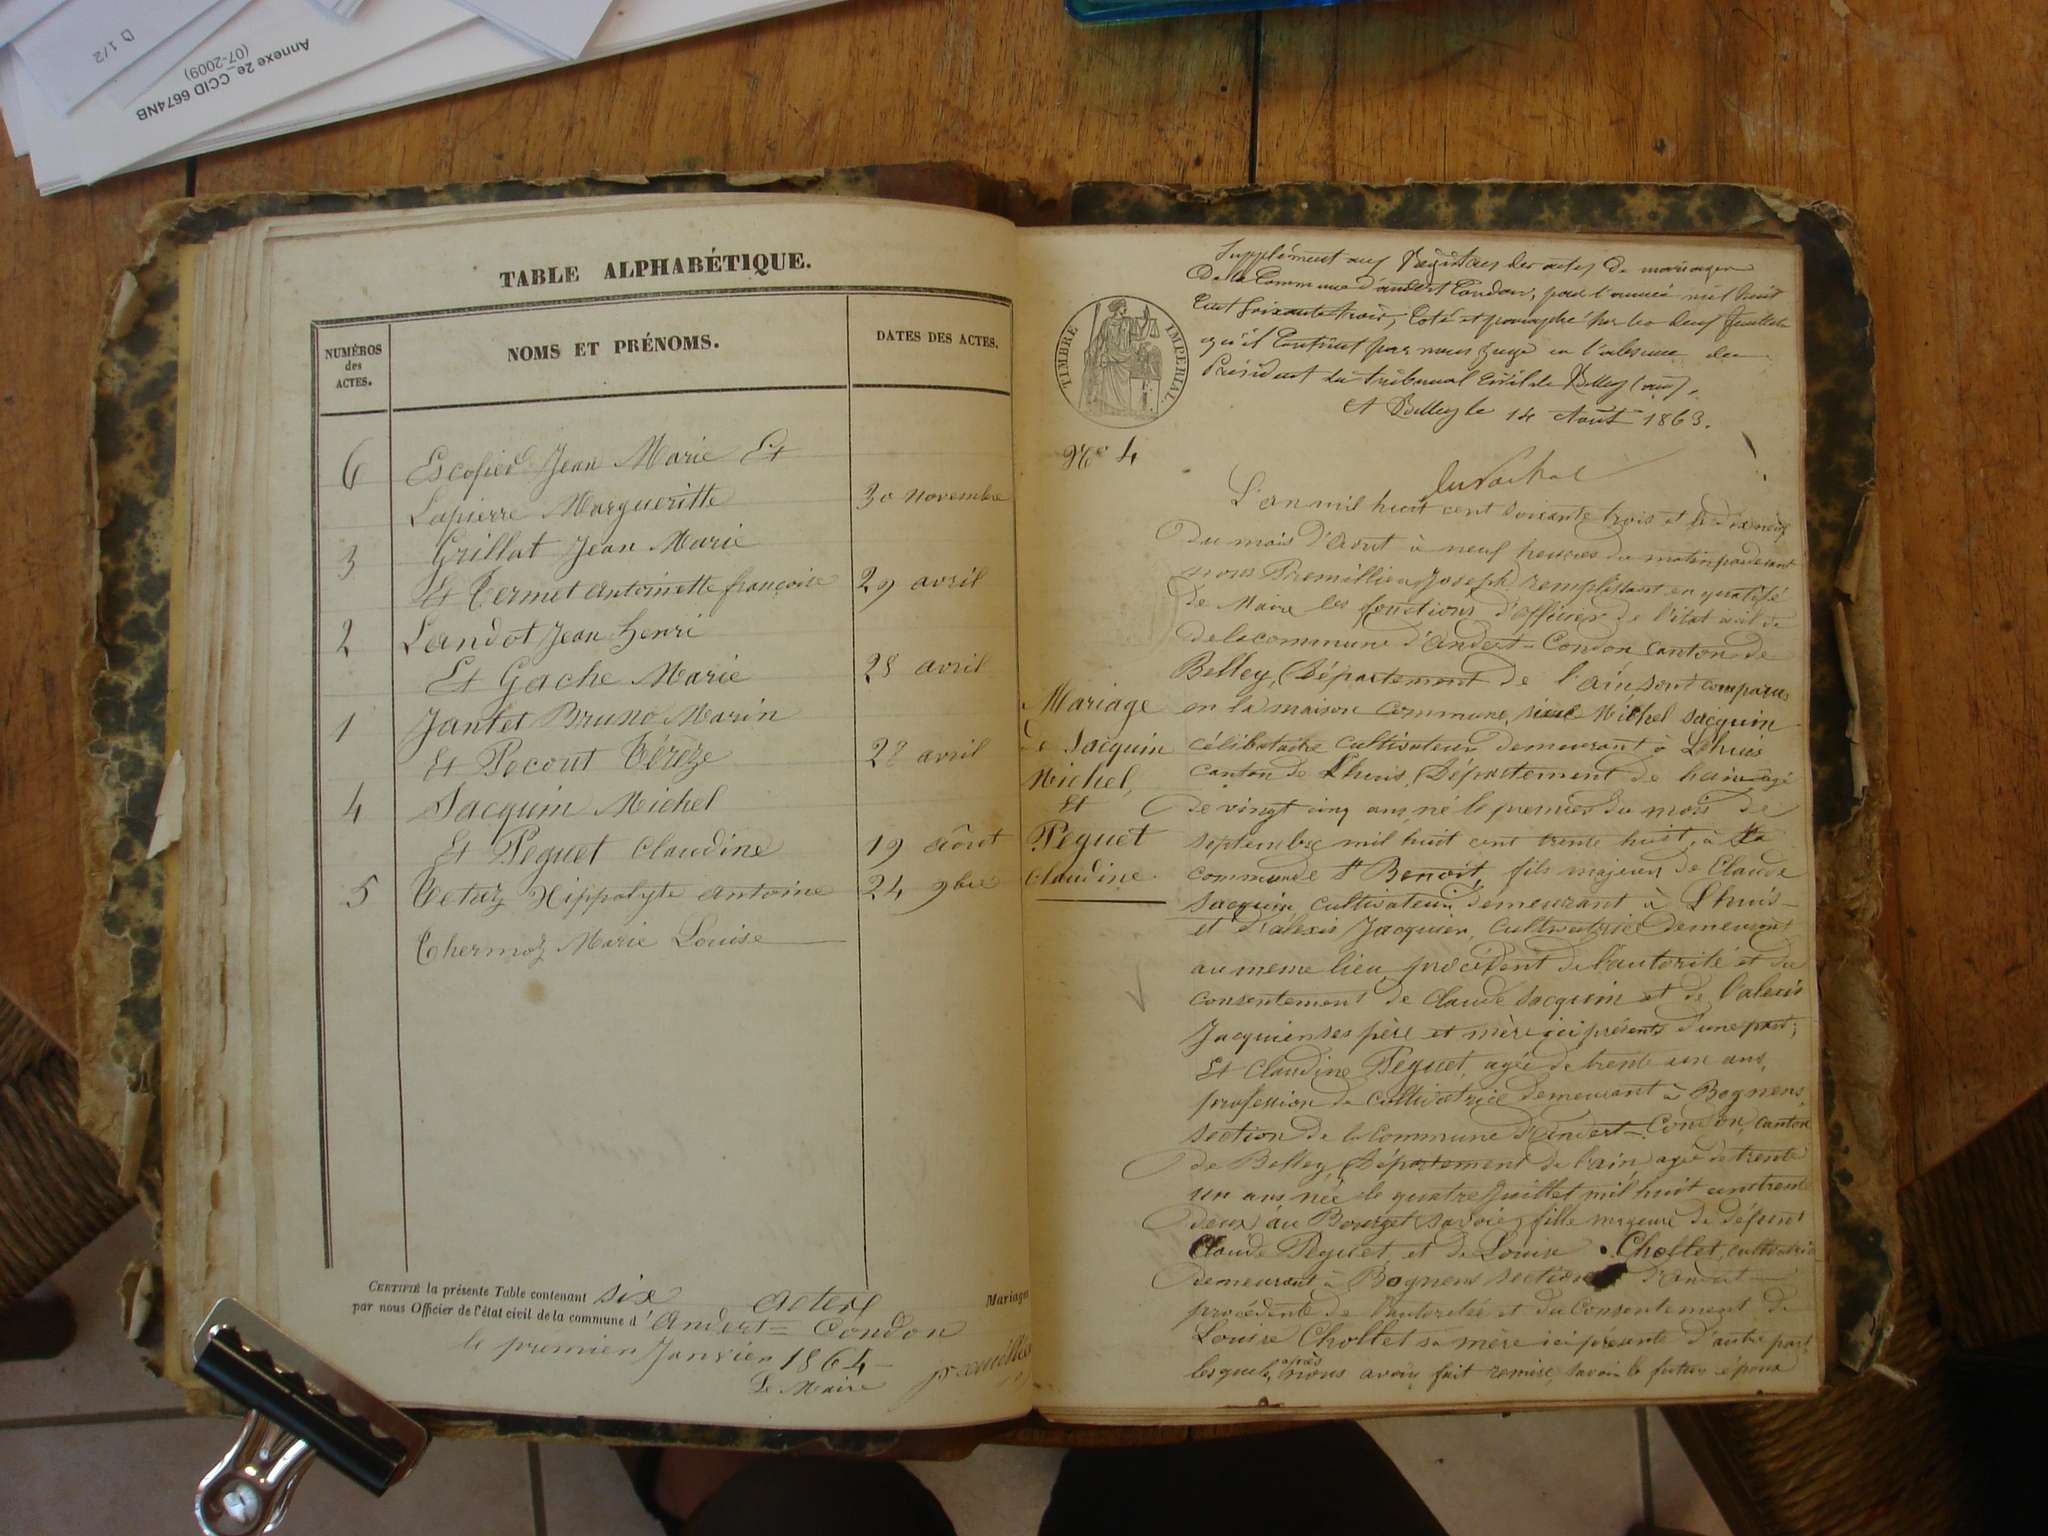 D 1/2
Annexe 2e_CCID 6674NB
(07-2009)
TABLE ALPHABÉTIQUE.
NUMÉROS
des
ACTES.
NOMS ET PRÉNOMS.
DATES DES ACTES.
6 Escofier Jean Marie Et
Lapierre Margueritte 30 novembre
3 Grillat Jean Marie
Et Termet antoinette françoise 29 avril
2 Landot Jean henri
Et Gache Marie 28 avril
1 Jantet Bruno Marin
Et Pocout Térèze 28 avril
4 Jacquin Michel
Et Peguet Claudine 19 août
5 Tetaz Hippolyte antoine 24 9bre
Thermoz Marie Louise
CERTIFIÉ la présente Table contenant six actes
par nous Officier de l'état civil de la commune d'Andert=Condon
le premier Janvier 1864
Le Maire
Mariages
TIMBRE IMPERIAL
Supplément aux Registres des actes de mariages
De la Commune d'andert Condon, pour l'année mil huit
Cent soixante trois, Coté et paraphé sur les deux feuillets
qu'il Contient par nous juge en l'absence du
Président du tribunal Civil de Belley (ain).
A Belley le 14 Août 1863.
No 4
L'an mil huit cent soixante trois et le dix neuf
Du mois d'aout à neuf heures du matin pardevant
nous Premillieu Joseph remplissant en qualité
De Maire les fonctions d'officier de l'état civil de
De la commune d'Andert=Condon canton de
Belley, Département de l'ain sont comparus
Mariage
de Jacquin
Michel,
Et
Peguet
Claudine.
en la maison commune, Michel Jacquin
célibataire cultivateur demeurant à Lhuis
canton de Lhuis, Département de l'ain âgé
De vingt cinq ans, né le premier du mois de
septembre mil huit cent trente huit, à la
commune de St Benoit, fils majeur de Claude
Jacquin cultivateur demeurant à Lhuis
et d'alexis Jacquier, cultivatrice demeurant
au meme lieu, procédent de l'autorité et du
consentement de Claude Jacquin et de l'alexis
Jacquier ses père et mère ici présents d'une part;
Et Claudine Peguet, agée de trente un ans,
profession de cultivatrice demeurant à Bognens,
section de la commune d'Andert=Condon, canton
de Belley, Département de l'ain, agée de trente
un ans née le quatre Juillet mil huit cent trente
deux au Bourget (savoie) fille majeure de défunt
Claude Peguet, et de Louise Chollet, cultivatrice
demeurant à Bognens section d'andert
procédente de l'autorité et du consentement de
Louise Chollet sa mère ici présente d'autre part
lesquels après nous avoir fait remise, savoir le futur époux